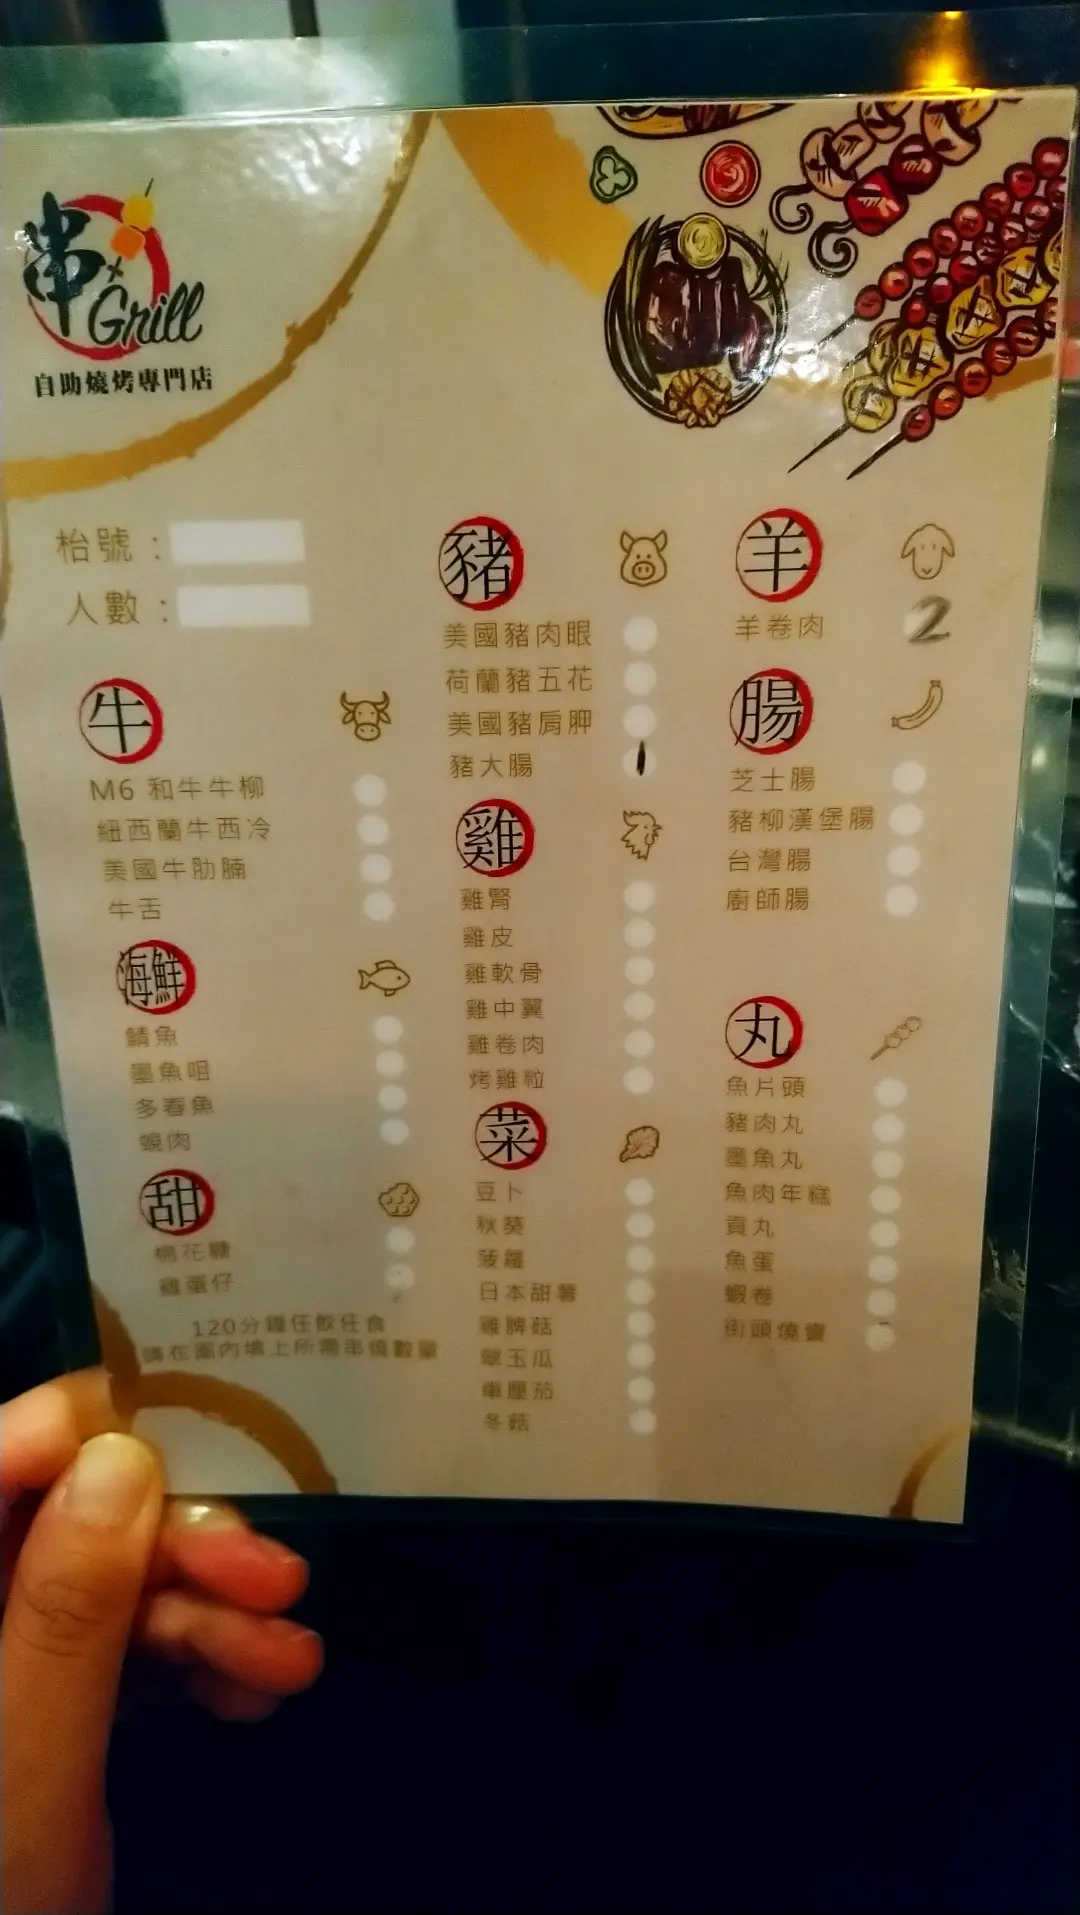 串
Grill
自助燒烤專門店
枱號：
人數：
牛
M6 和牛牛柳
紐西蘭牛西冷
美國牛肋腩
牛舌
海鮮
鯖魚
墨魚咀
多春魚
蜆肉
甜
棉花糖
雞蛋仔
120分鐘任飲任食
請在圈內填上所需串燒數量
豬
美國豬肉眼
荷蘭豬五花
美國豬肩胛
豬大腸 1
雞
雞腎
雞皮
雞軟骨
雞中翼
雞卷肉
烤雞粒
菜
豆卜
秋葵
菠蘿
日本甜薯
雞脾菇
翠玉瓜
車厘茄
冬菇
羊
羊卷肉 2
腸
芝士腸
豬柳漢堡腸
台灣腸
廚師腸
丸
魚片頭
豬肉丸
墨魚丸
魚肉年糕
貢丸
魚蛋
蝦卷
街頭燒賣